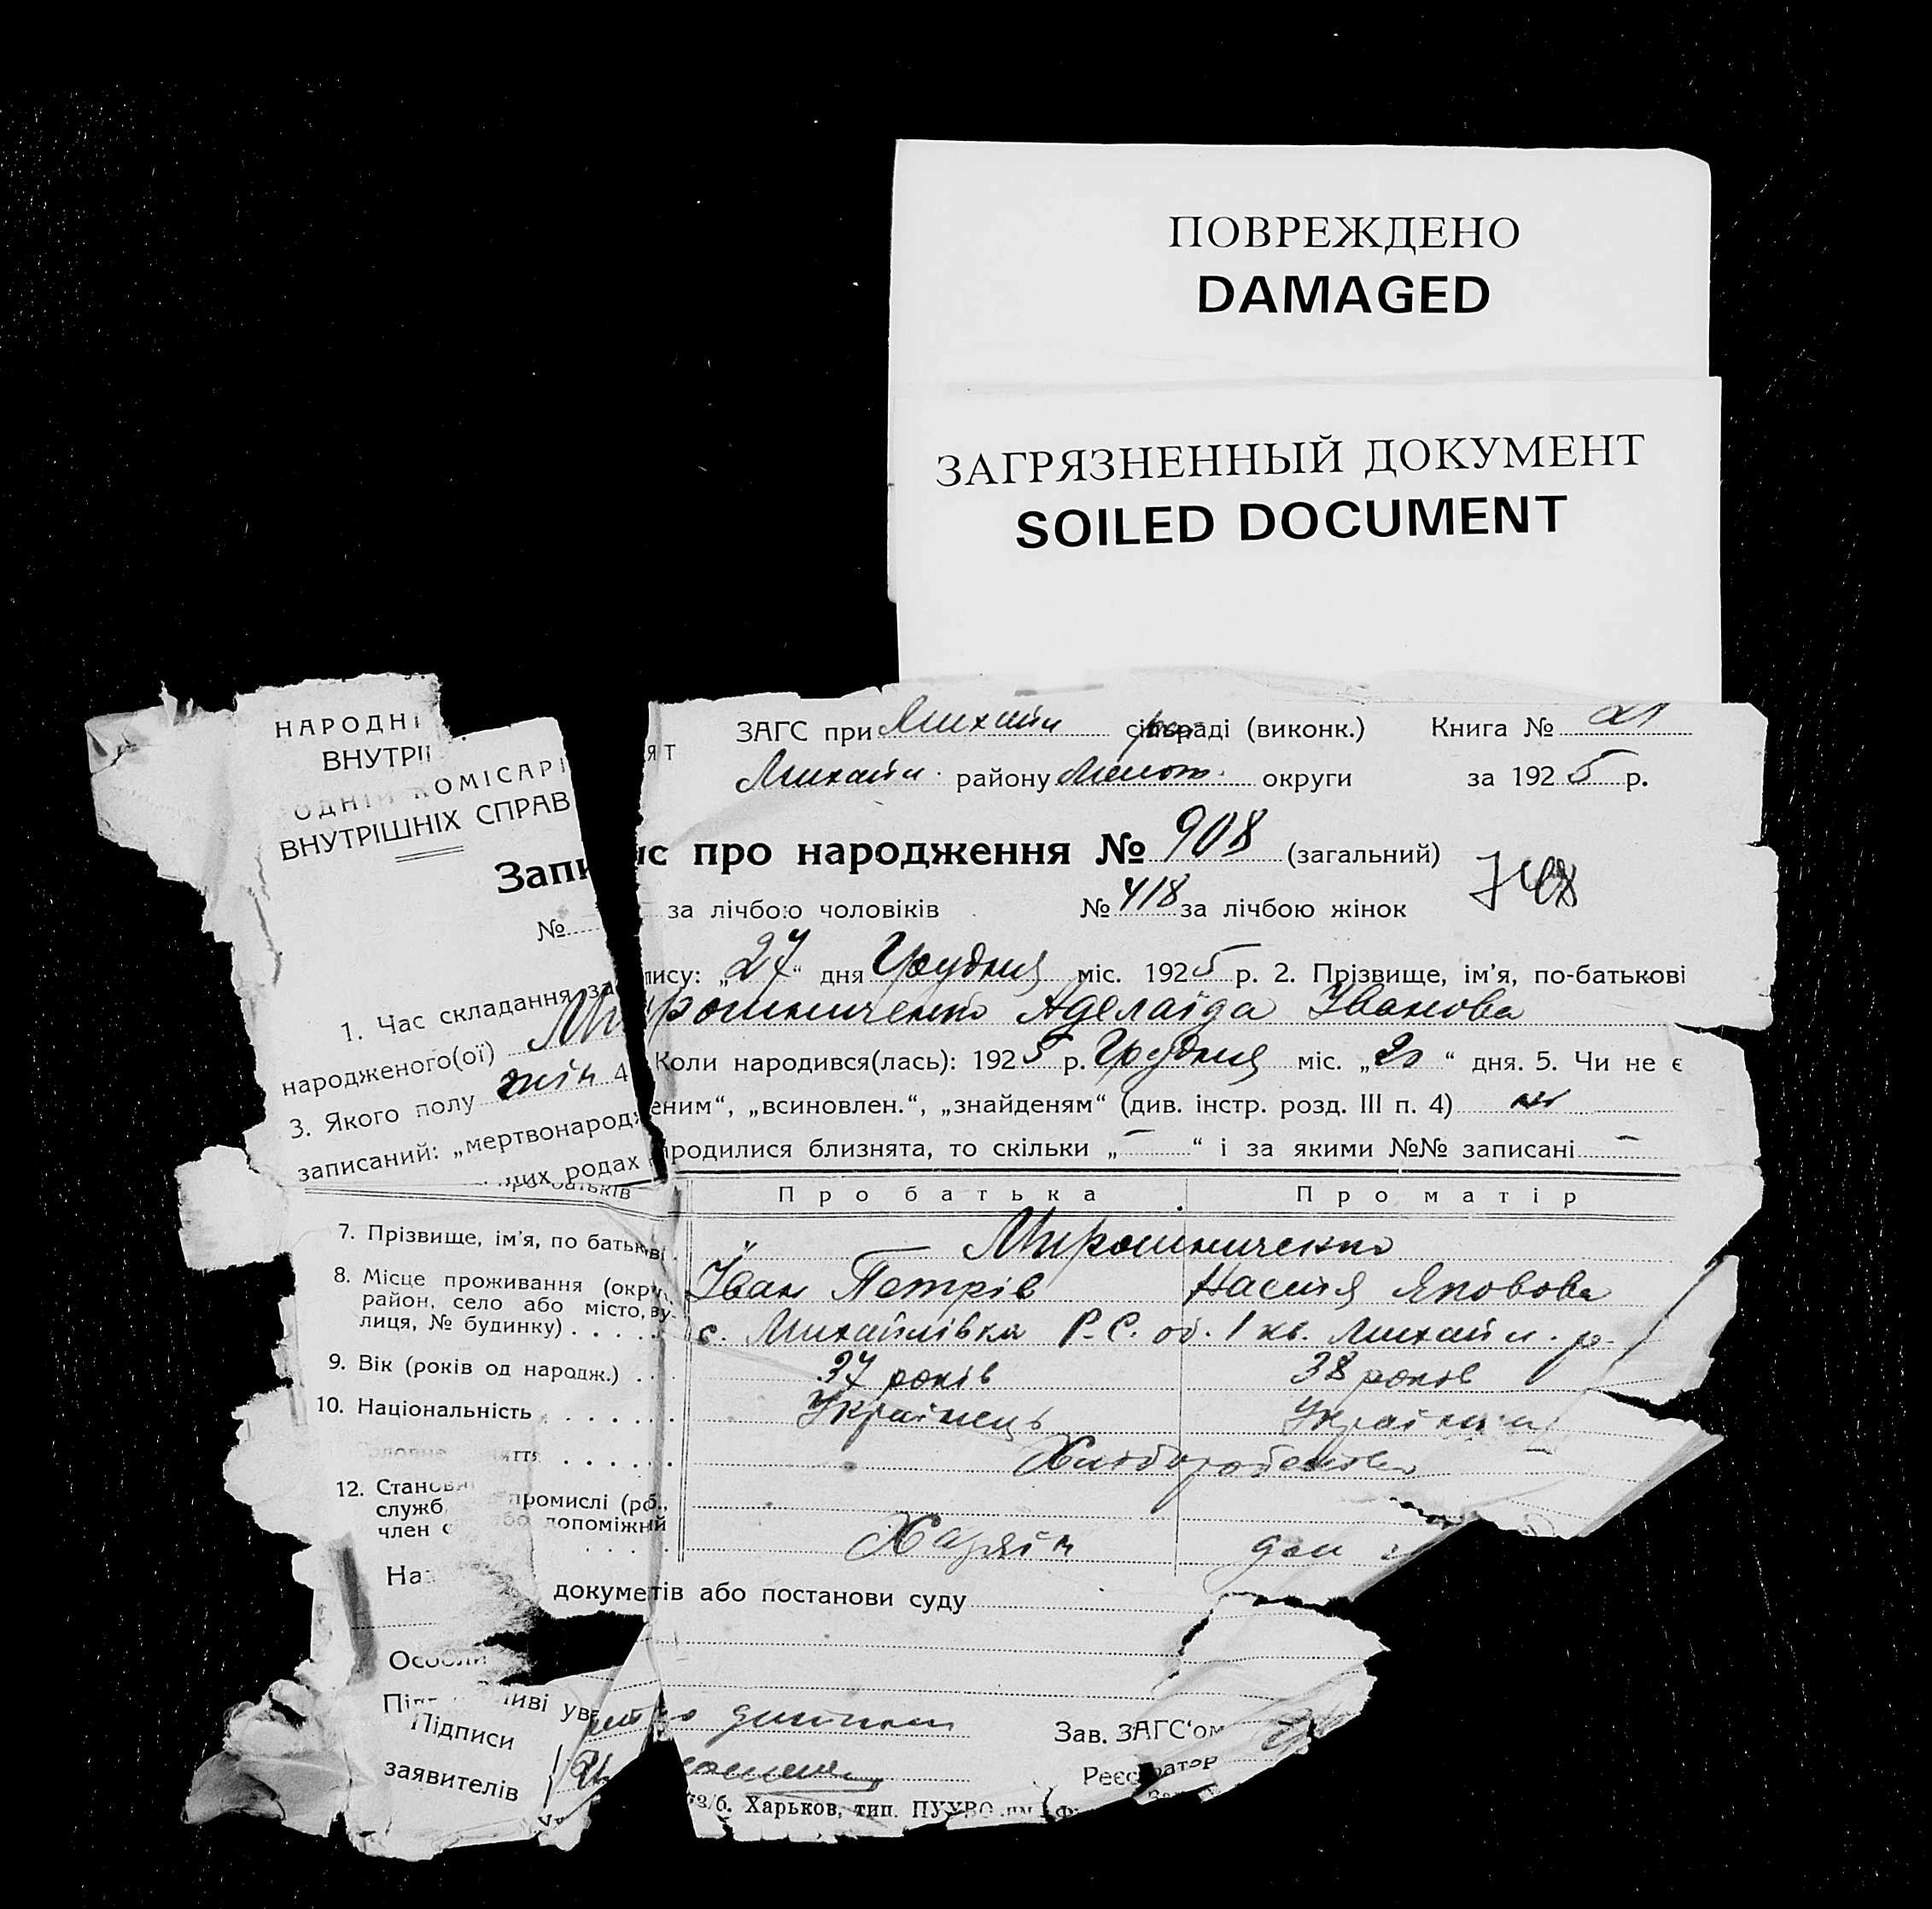 ПОВРЕЖДЕНО
DAMAGED
ЗАГРЯЗНЕННЫЙ ДОКУМЕНТ
SOILED DOCUMENT
НАРОДНІ
ВНУТРІ
ОДНІЙ КОМІСАРІ
ВНУТРІШНІХ СПРАВ
ЯТ
ЗАГС при Михайл сільраді (виконк.) Книга №
Михайл. району Меліт. округи за 1925 р.
Запис про народження № 908 (загальний)
748
№ за лічбою чоловіків № 418 за лічбою жінок
1. Час складання запису: „27“ дня Грудня міс. 1925 р. 2. Прізвище, ім’я, по-батькові
народженого(ої) Мирошниченко Аделаїда Іванова
3. Якого полу жін 4 Коли народився(лась): 1925 р. Грудня міс. „20“ дня. 5. Чи не є
записаний: „мертвонародженим“, „всиновлен.“, „знайденям“ (див. інстр. розд. III п. 4) ні
цих родах народилися близнята, то скільки „—“ і за якими №№ записані —
Про батька Про матір
7. Прізвище, ім’я, по батькові . Мирошниченко
Іван Петрів Настя Яковова
8. Місце проживання (округ,
район, село або місто, ву-
лиця, № будинку) . . . . . с. Михайлівка Р.-С. об. 1 кв. Михайл. р.
9. Вік (років од народж.) . . . 37 років 38 років
10. Національність . . . . . . . Українець Українка
Головне життя . . . . . . Хліборобство
12. Станов
служб. промислі (рб.,
член або допоміжний
. . . . Хазяїн доп
На докуметів або постанови суду
Особли
Підписи
заявителів
Зав. ЗАГС‘ом
Реєстратор
73/6. Харьков, тип. ПУУВО